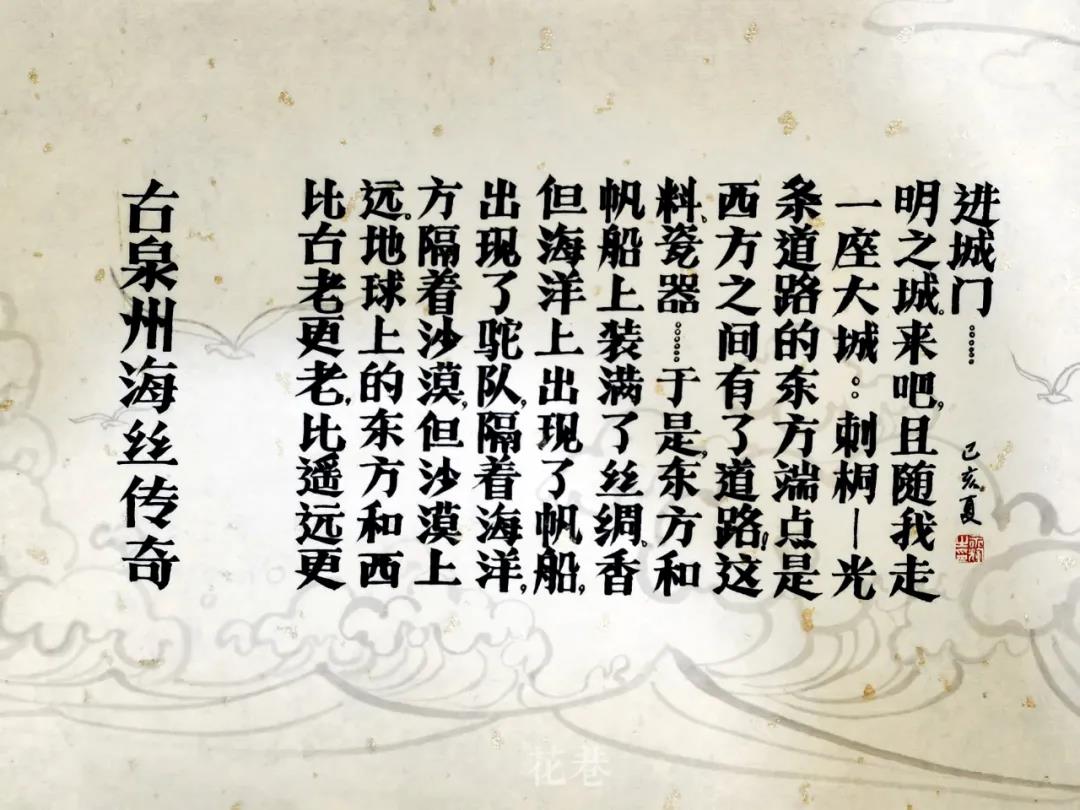 古泉州海丝传奇
比古老更老，比遥远更
远。地球上的东方和西
方隔着沙漠，但沙漠上
出现了驼队，隔着海洋，
但海洋上出现了帆船，
帆船上装满了丝绸。香
料。瓷器……于是，东方和
西方之间有了道路！这
条道路的东方端点是
一座大城：刺桐—光
明之城。来吧，且随我走
进城门……
己亥夏
花巷